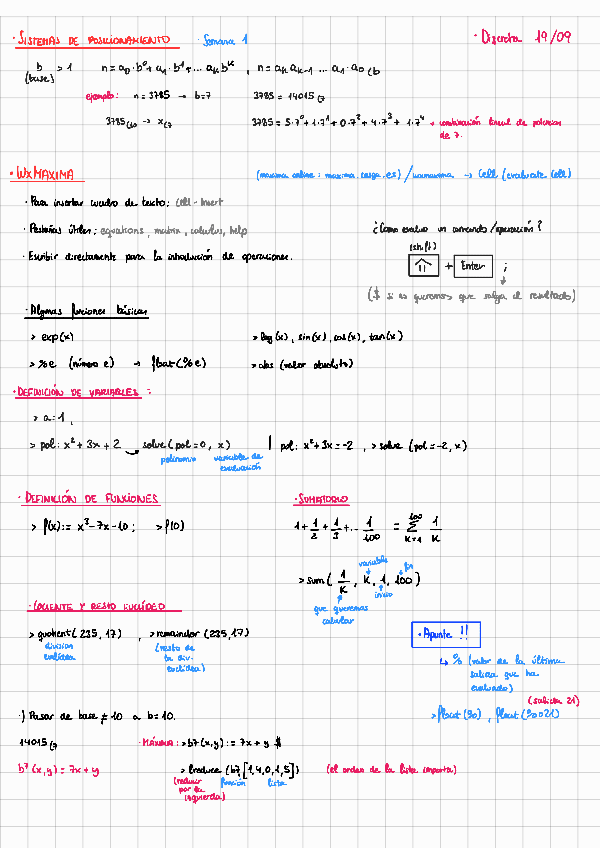 · SISTEMAS DE POSICIONAMIENTO · Semana 1 · Discreta 19/09
b > 1 n = a₀·b⁰ + a₁·b¹ + ... aₖbᵏ , n = aₖ aₖ₋₁ ... a₁·a₀ (b
(base)
ejemplo: n = 3785 → b=7 3785 = 14015 (7
3785 (10 → x (7 3785 = 5·7⁰ + 1·7¹ + 0·7² + 4·7³ + 1·7⁴ → combinación lineal de potencias
de 7.
· WXMAXIMA (maxima online: maxima.cesga.es) / wxmaxima → Cell (evaluate Cell)
· Para insertar cuadro de texto: Cell - Insert
· Pestañas útiles: equations, matrix, calculus, help
¿Cómo evalúo un comando/operación?
· Escribir directamente para la introducción de operaciones.
(shift)
⇧ + Enter ;
($ si no queremos que salga el resultado)
· Algunas funciones básicas
> exp(x) > log(x), sin(x), cos(x), tan(x)
> %e (número e) → float(%e) > abs (valor absoluto)
· DEFINICIÓN DE VARIABLES :
> a: 1 ,
> pol: x² + 3x + 2 solve(pol=0, x) | pol: x²+3x=-2 , > solve (pol=-2, x)
polinomio variable de
evaluación
· DEFINICIÓN DE FUNCIONES · SUMATORIO
> f(x):= x³-7x-10; > f(0) 1 + 1/2 + 1/3 + ... 1/100 = ∑ 1/K
100
K=1
> sum( 1/K , K, 1, 100)
variable fin
inicio
que queremos
calcular
· COCIENTE Y RESTO EUCLÍDEO
> quotient(235, 17) , > remainder (235,17)
división
euclídea
(resto de
la div.
euclídea)
· Apunte !!
↳ % (valor de la última
salida que ha
evaluado)
(salida 21)
> float(%) , float(%o21)
·) Pasar de base ≠ 10 a b=10.
14015 (7 · MÁXIMA: > b7(x,y) := 7x + y $
b⁷(x,y) = 7x + y > lreduce (b7, [1,4,0,1,5]) (el orden de la lista importa)
(reducir
por la
izquierda)
función lista